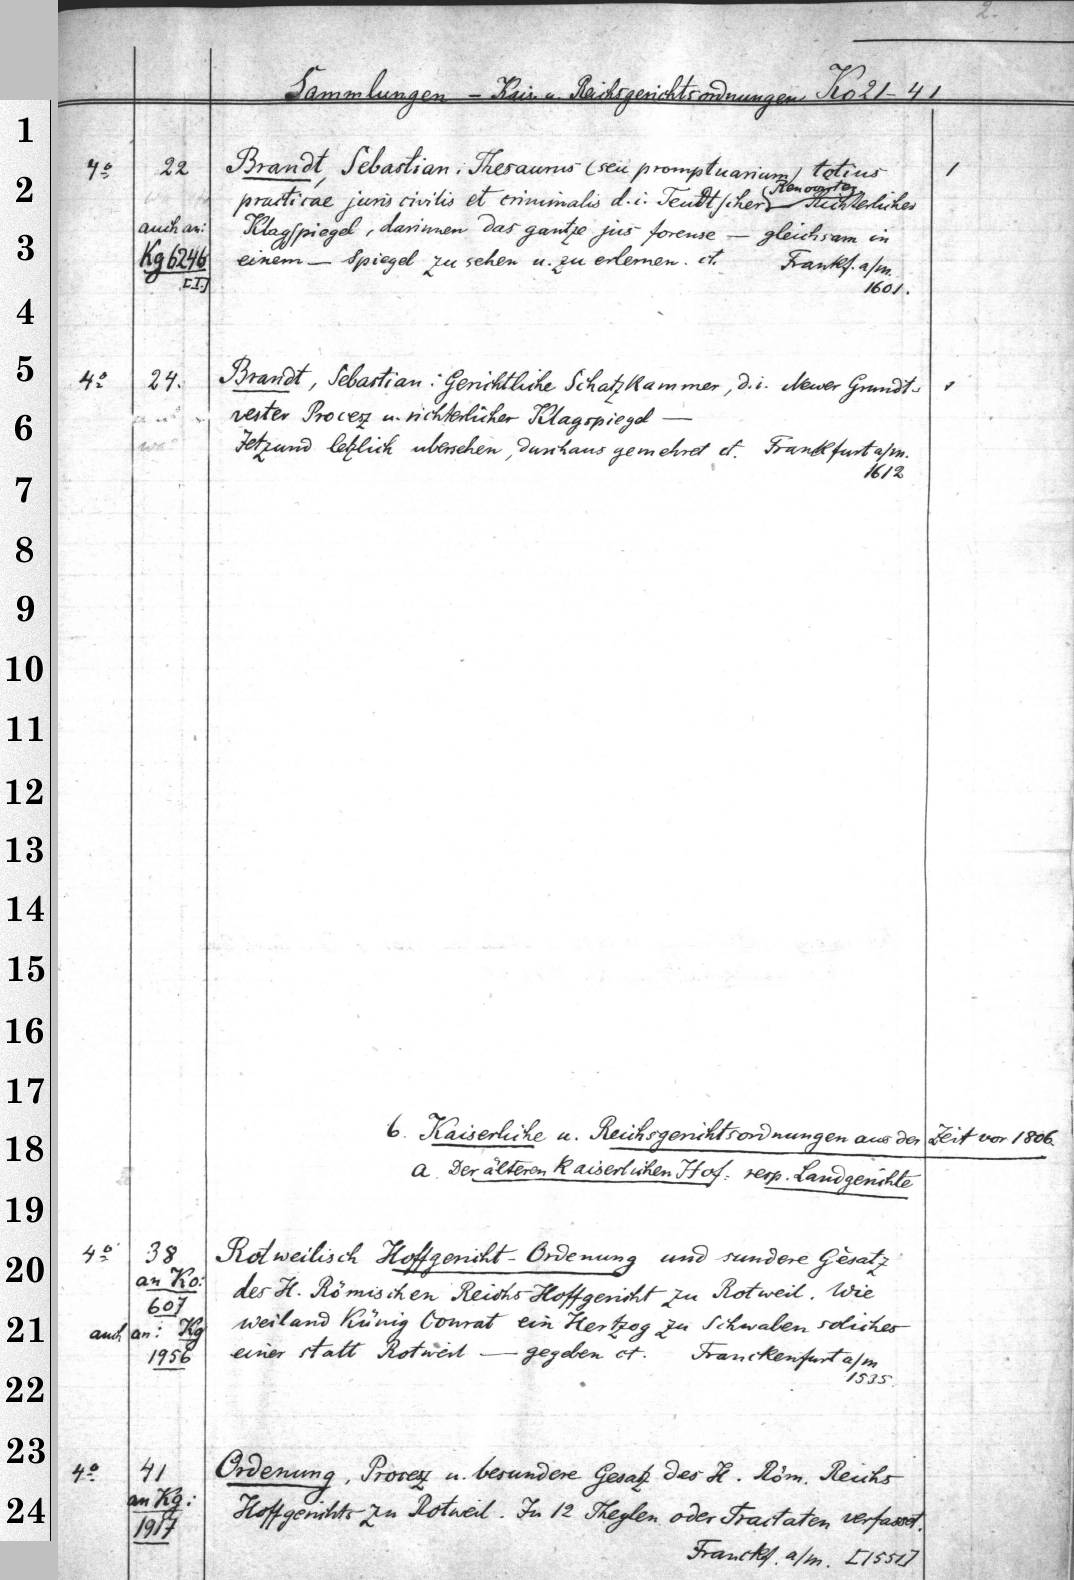 2.
Sammlungen - Kais. u. Reichsgerichtsordnungen Ko 21-41
1
2
3
4
5
6
7
8
9
10
11
12
13
14
15
16
17
18
19
20
21
22
23
24
4o 22 Brandt, Sebastian: Thesaurus (seu promptuarium) totius 1
Renovirter
practicae juris civilis et criminalis d.i. Teudtscher Richterliches
auch an: Klagspiegel, darinnen das gantze jus forense — gleichsam in
Kg 6246 einem — Spiegel zu sehen u. zu erlernen. ct. Frankf. a/m.
[I] 1601.
4o 24. Brandt, Sebastian: Gerichtliche Schatzkammer, d.i. Newer Grundt-
vester Procesz u. richterlicher Klagspiegel —
Jetzund letzlich ubersehen, durchaus gemehret ct. Franckfurt a/m.
1612
b. Kaiserliche u. Reichsgerichtsordnungen aus der Zeit vor 1806.
a. Der älteren Kaiserlichen Hof- resp. Landgerichte
4o 38 Rotweilisch Hoffgericht-Ordenung und sundere Gesatz
an Ko: des H. Römischen Reichs Hoffgericht zu Rotweil. Wie
607 weiland Künig Conrat ein Hertzog zu Schwaben soliches
auch an: Kg einer statt Rotweil — gegeben ct. Franckenfurt a/m
1956 1535.
4o 41 Ordenung, Procesz u. besundere Gesatz des H. Röm. Reichs
an Kg: Hoffgerichts zu Rotweil. In 12 Theylen oder Tractaten verfasset.
1917 Franckf. a/m. [1551]